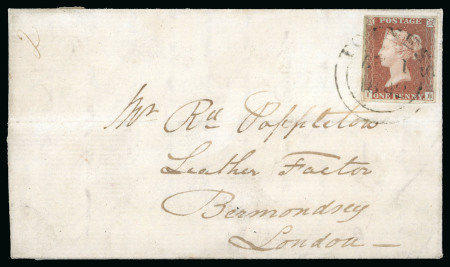 POSTAGE
ONE PENNY
Mr Rd Poppleton
Leather Factor
Bermondsey
London